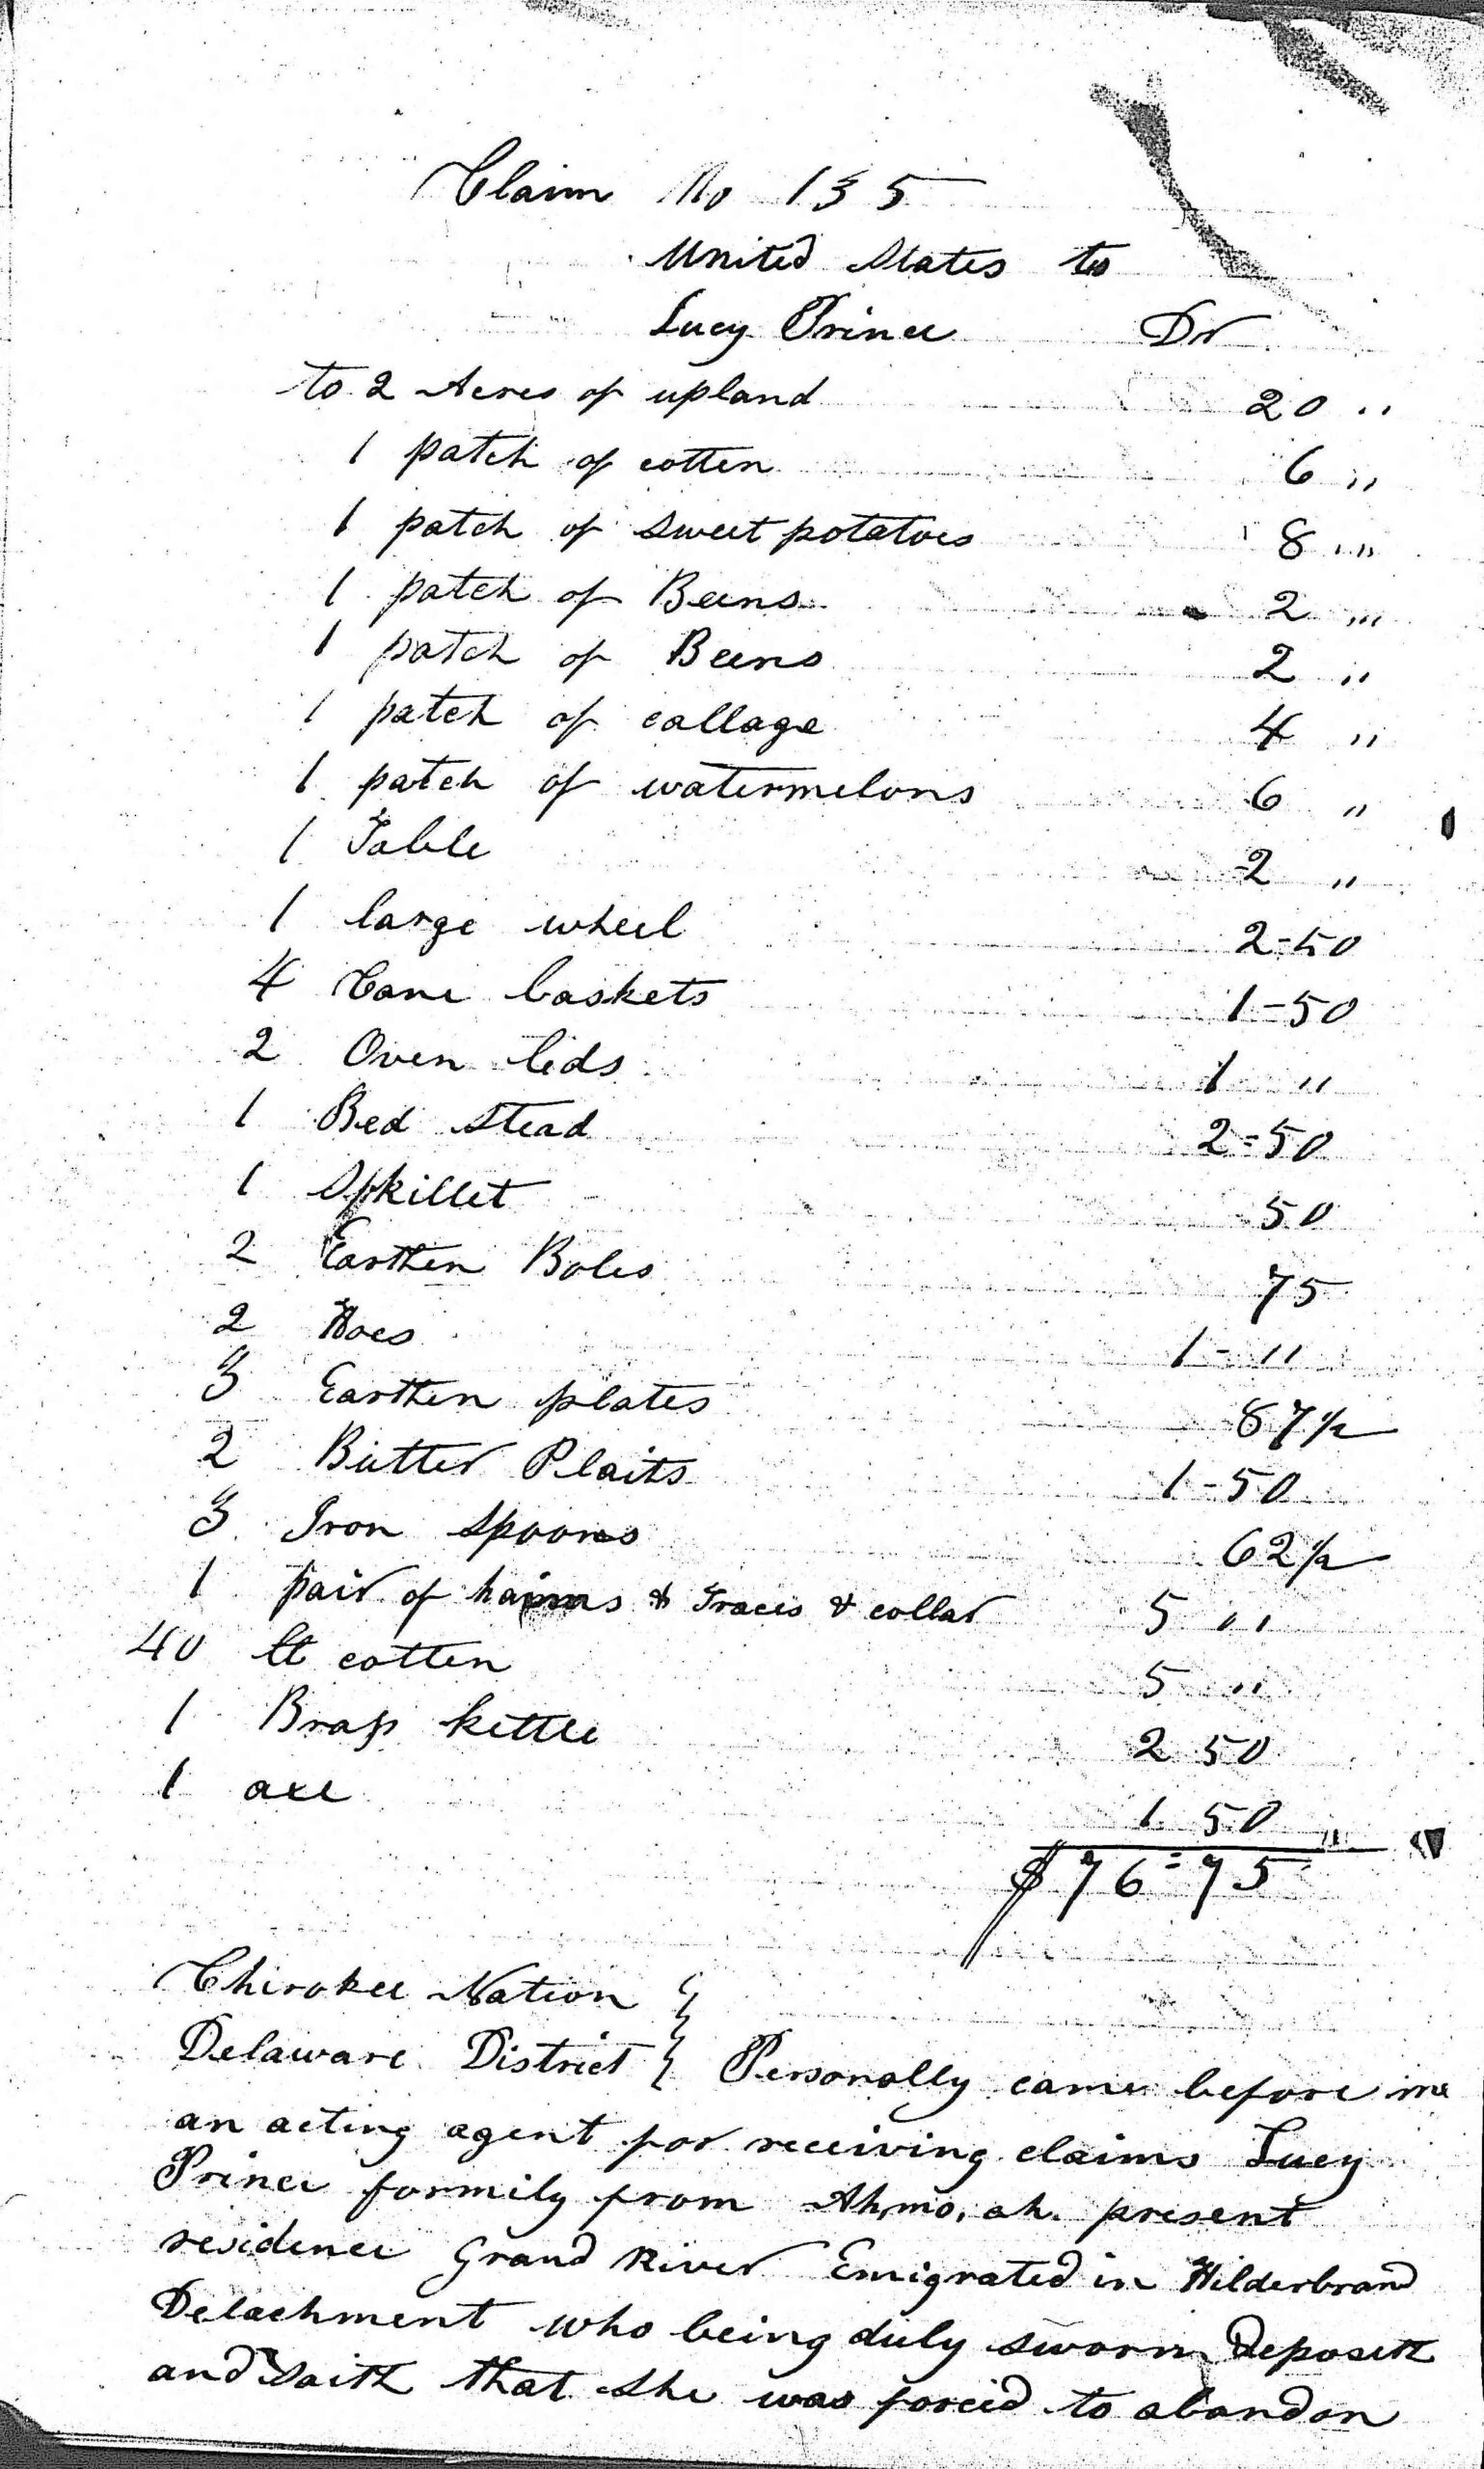 Claim No 135
United States to
Lucy Prince Dr
to 2 Acres of upland 20 "
1 patch of cotten 6 "
1 patch of sweet potatoes 8 "
1 patch of Beens 2 "
1 patch of Beens 2 "
1 patch of callage 4 "
1 patch of watermelons 6 "
1 Table 2 "
1 large wheel 2=50
4 Cane baskets 1-50
2 Oven lids 1 "
1 Bed stead 2=50
1 Skillet 50
2 Earthen Boles 75
2 Hoes 1- "
3 Earthen plates 87½
2 Butter Plaits 1-50
3 Iron spoons 62½
1 pair of hames & Traces & collar 5 "
40 lt cotten 5 "
1 Brass kettle 2 50
1 axe 1 50
$76=75
Cherokee Nation }
Delaware District } Personally came before me
an acting agent for receiving claims Lucy
Prince formily from Ah,mo,ah. present
residence Grand River Emigrated in Hilderbrand
Detachment who being duly sworn Deposeth
and Saith that she was forced to abandon